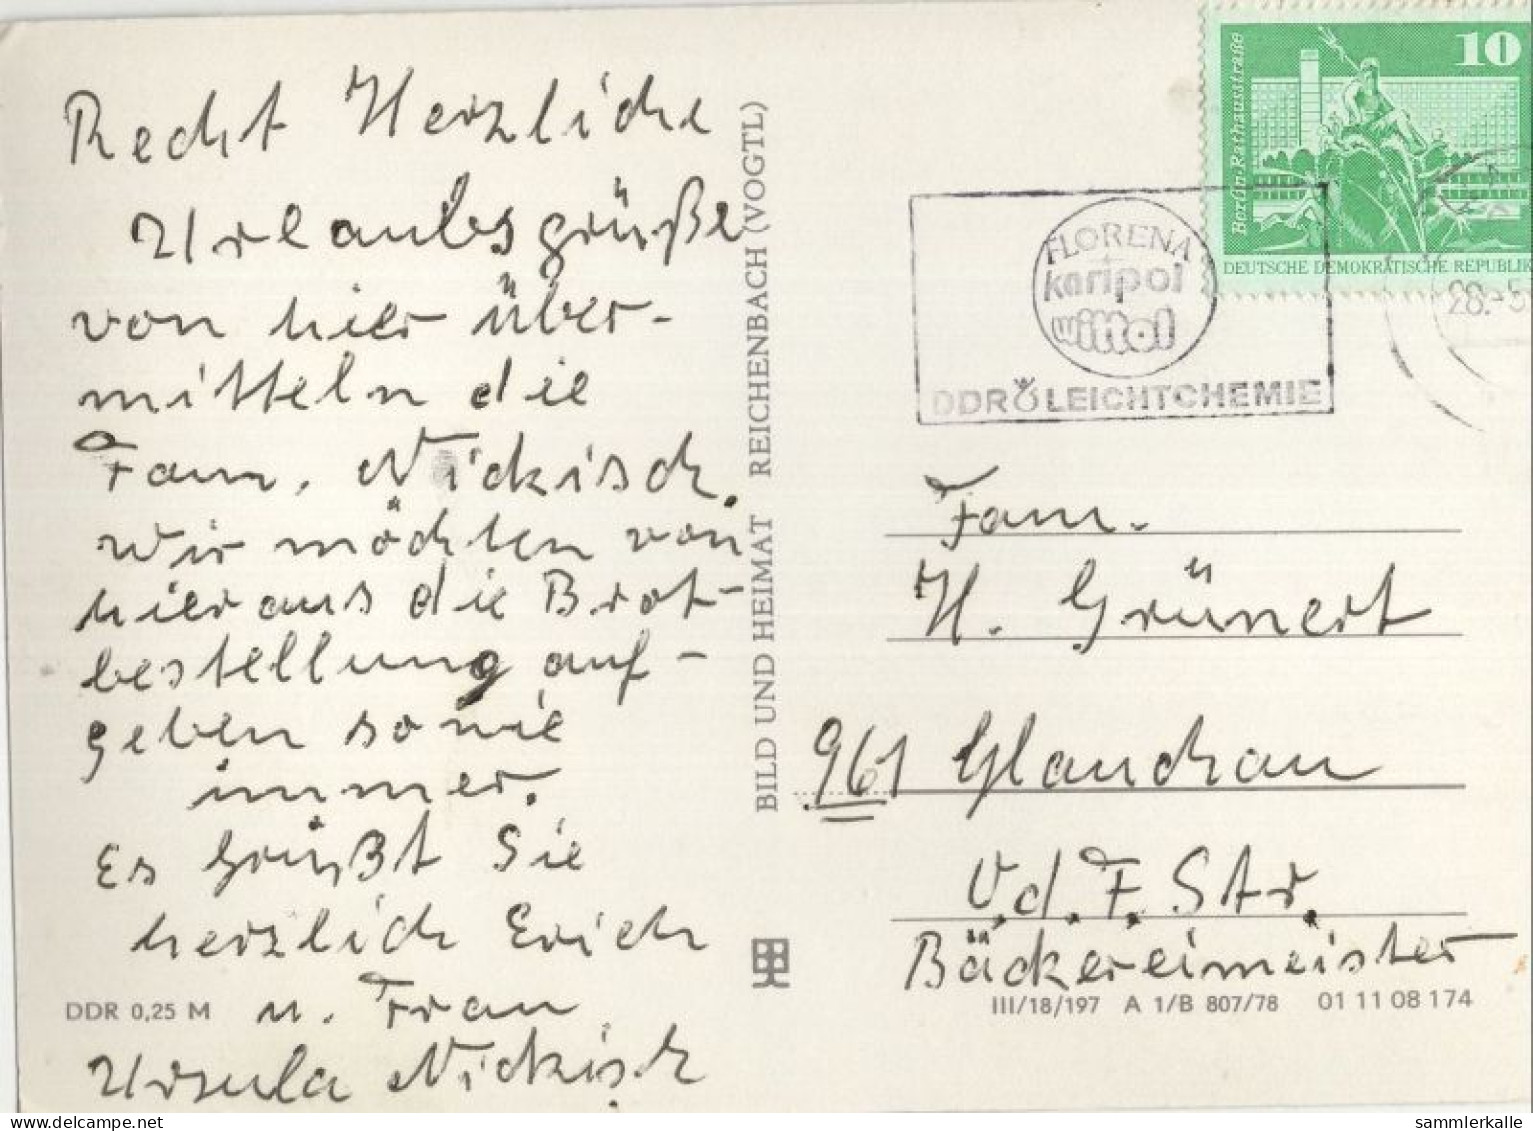 Recht Herzliche
Urlaubsgrüße
von hier über-
mitteln die
Fam. Nickisch.
Wir möchten von
hier aus die Brot-
bestellung auf-
geben sowie
immer.
Es grüßt Sie
herzlich Erich
u. Frau
Ursula Nickisch
DDR 0,25 M
BILD UND HEIMAT REICHENBACH (VOGTL)
10
Berlin-Rathausstraße
DEUTSCHE DEMOKRATISCHE REPUBLIK
FLORENA
karipol
wittol
DDR LEICHTCHEMIE
28.-5
Fam.
H. Grünert
961 Glauchau
V.d.F. Str.
Bäckereimeister
III/18/197 A 1/B 807/78 01 11 08 174
sammlerkalle